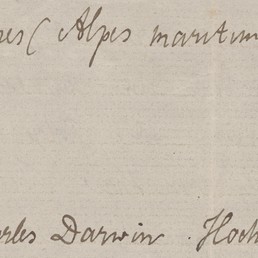 res (Alpes maritim
rles Darwin. Hoch